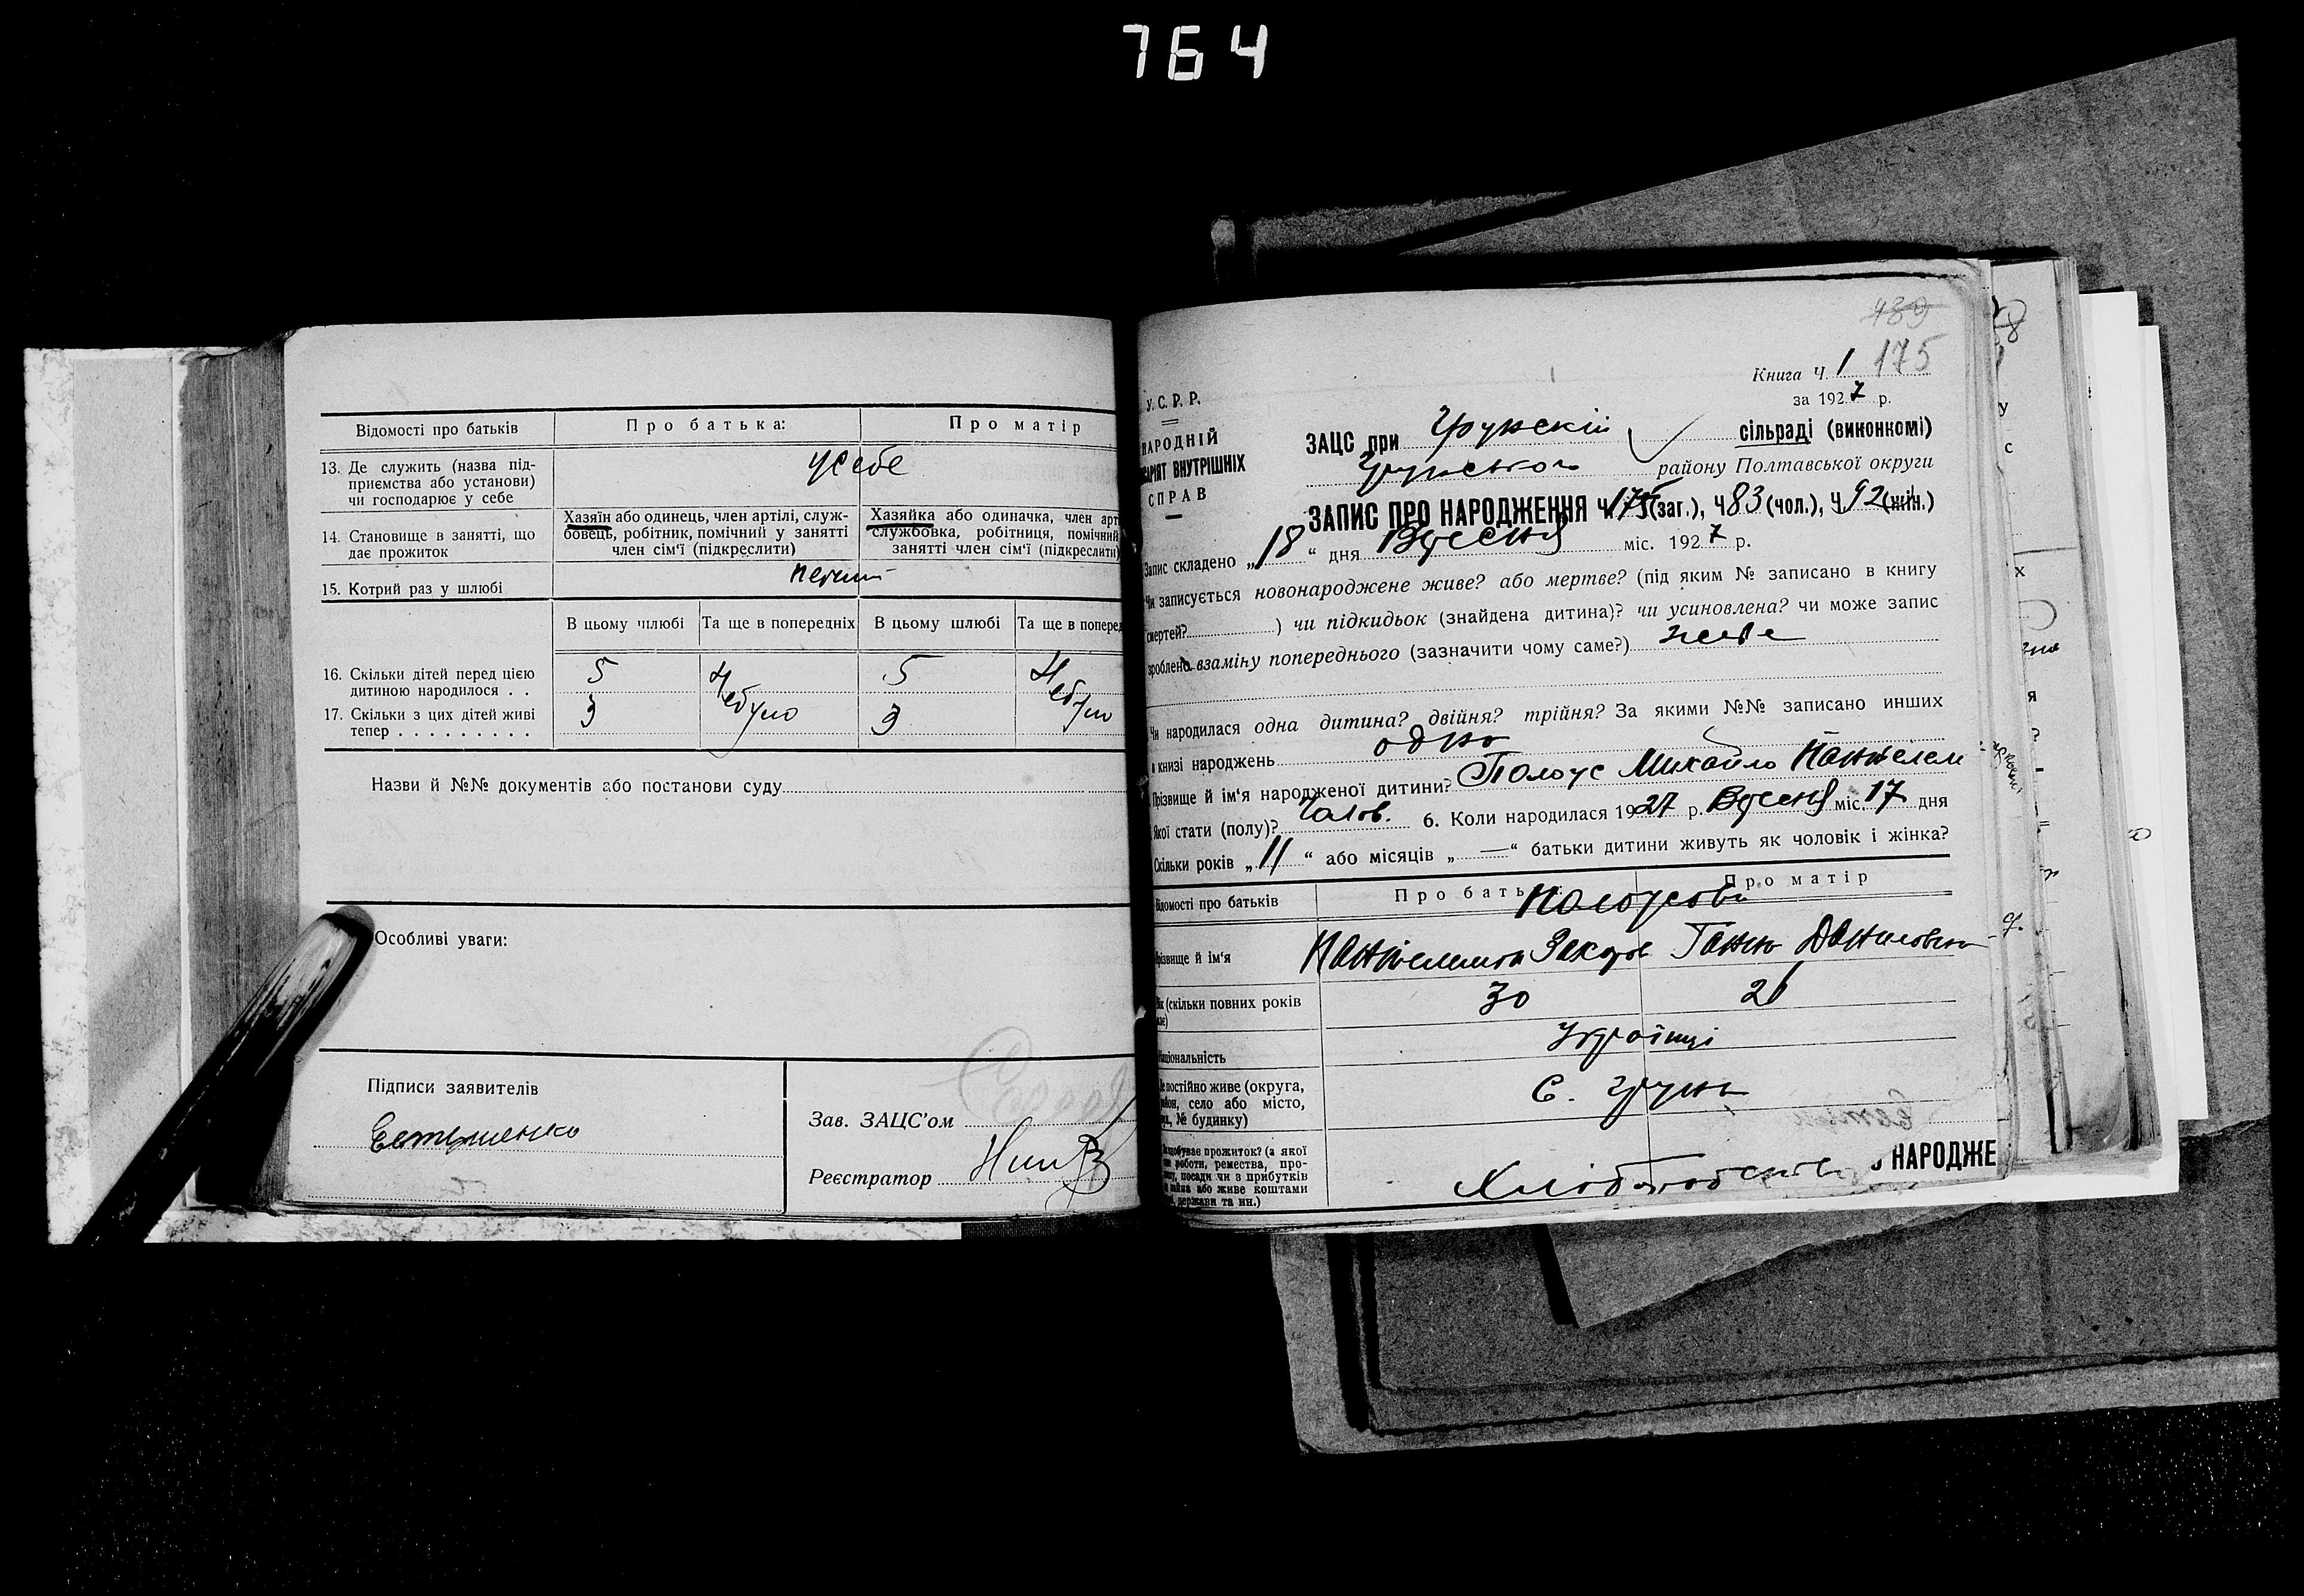 764
Відомості про батьків
Про батька:
Про матір
13. Де служить (назва під-
приємства або установи)
чи господарює у себе
усебе
14. Становище в занятті, що
дає прожиток
Хазяїн або одинець, член артілі, служ-
бовець, робітник, помічний у занятті
член сім'ї (підкреслити)
Хазяйка або одиначка, член арт
службовка, робітниця, помічний
занятті член сім'ї (підкреслити)
15. Котрий раз у шлюбі
В цьому шлюбі
Та ще в попередніх
В цьому шлюбі
Та ще в поперед
16. Скільки дітей перед цією
дитиною народилося . .
5
Небуло
5
Небуло
17. Скільки з цих дітей живі
тепер . . . . . . . . .
3
3
Назви й №№ документів або постанови суду
Особливі уваги:
Підписи заявителів
Зав. ЗАЦС'ом
Реєстратор
489
175
Книга Ч. 1
за 1927 р.
У. С. Р. Р.
НАРОДНІЙ
ВНУТРІШНІХ
СПРАВ
ЗАЦС при Грунскій сільраді (виконкомі)
Грунського району Полтавської округи
ЗАПИС ПРО НАРОДЖЕННЯ Ч 175 (заг.), Ч 83 (чол.), Ч 92 (жін.)
Запис складено „18" дня Вересня міс. 1927 р.
Чи записується новонароджене живе? або мертве? (під яким № записано в книгу
смертей? ) чи підкидьок (знайдена дитина)? чи усиновлена? чи може запис
зроблено взаміну попереднього (зазначити чому саме?) живе
Чи народилася одна дитина? двійня? трійня? За якими №№ записано инших
в книзі народжень одно
Прізвище й ім'я народженої дитини? Полоус Михайло Пантелем
Якої стати (полу)? Чолов. 6. Коли народилася 1927 р. Вересня міс. 17 дня
Скільки років „11" або місяців „—" батьки дитини живуть як чоловік і жінка?
Відомості про батьків
Про батька
Про матір
Полоусови
Прізвище й ім'я
Ганна Даниловна
(скільки повних років
30
26
Національність
Українці
постійно живе (округа,
село або місто,
№ будинку)
с. Грунь
прожиток? (з якої
роботи, ремества, про-
посади чи з прибутків
або живе коштами
держави та ин.)
Хліборобство
НАРОДЖЕ